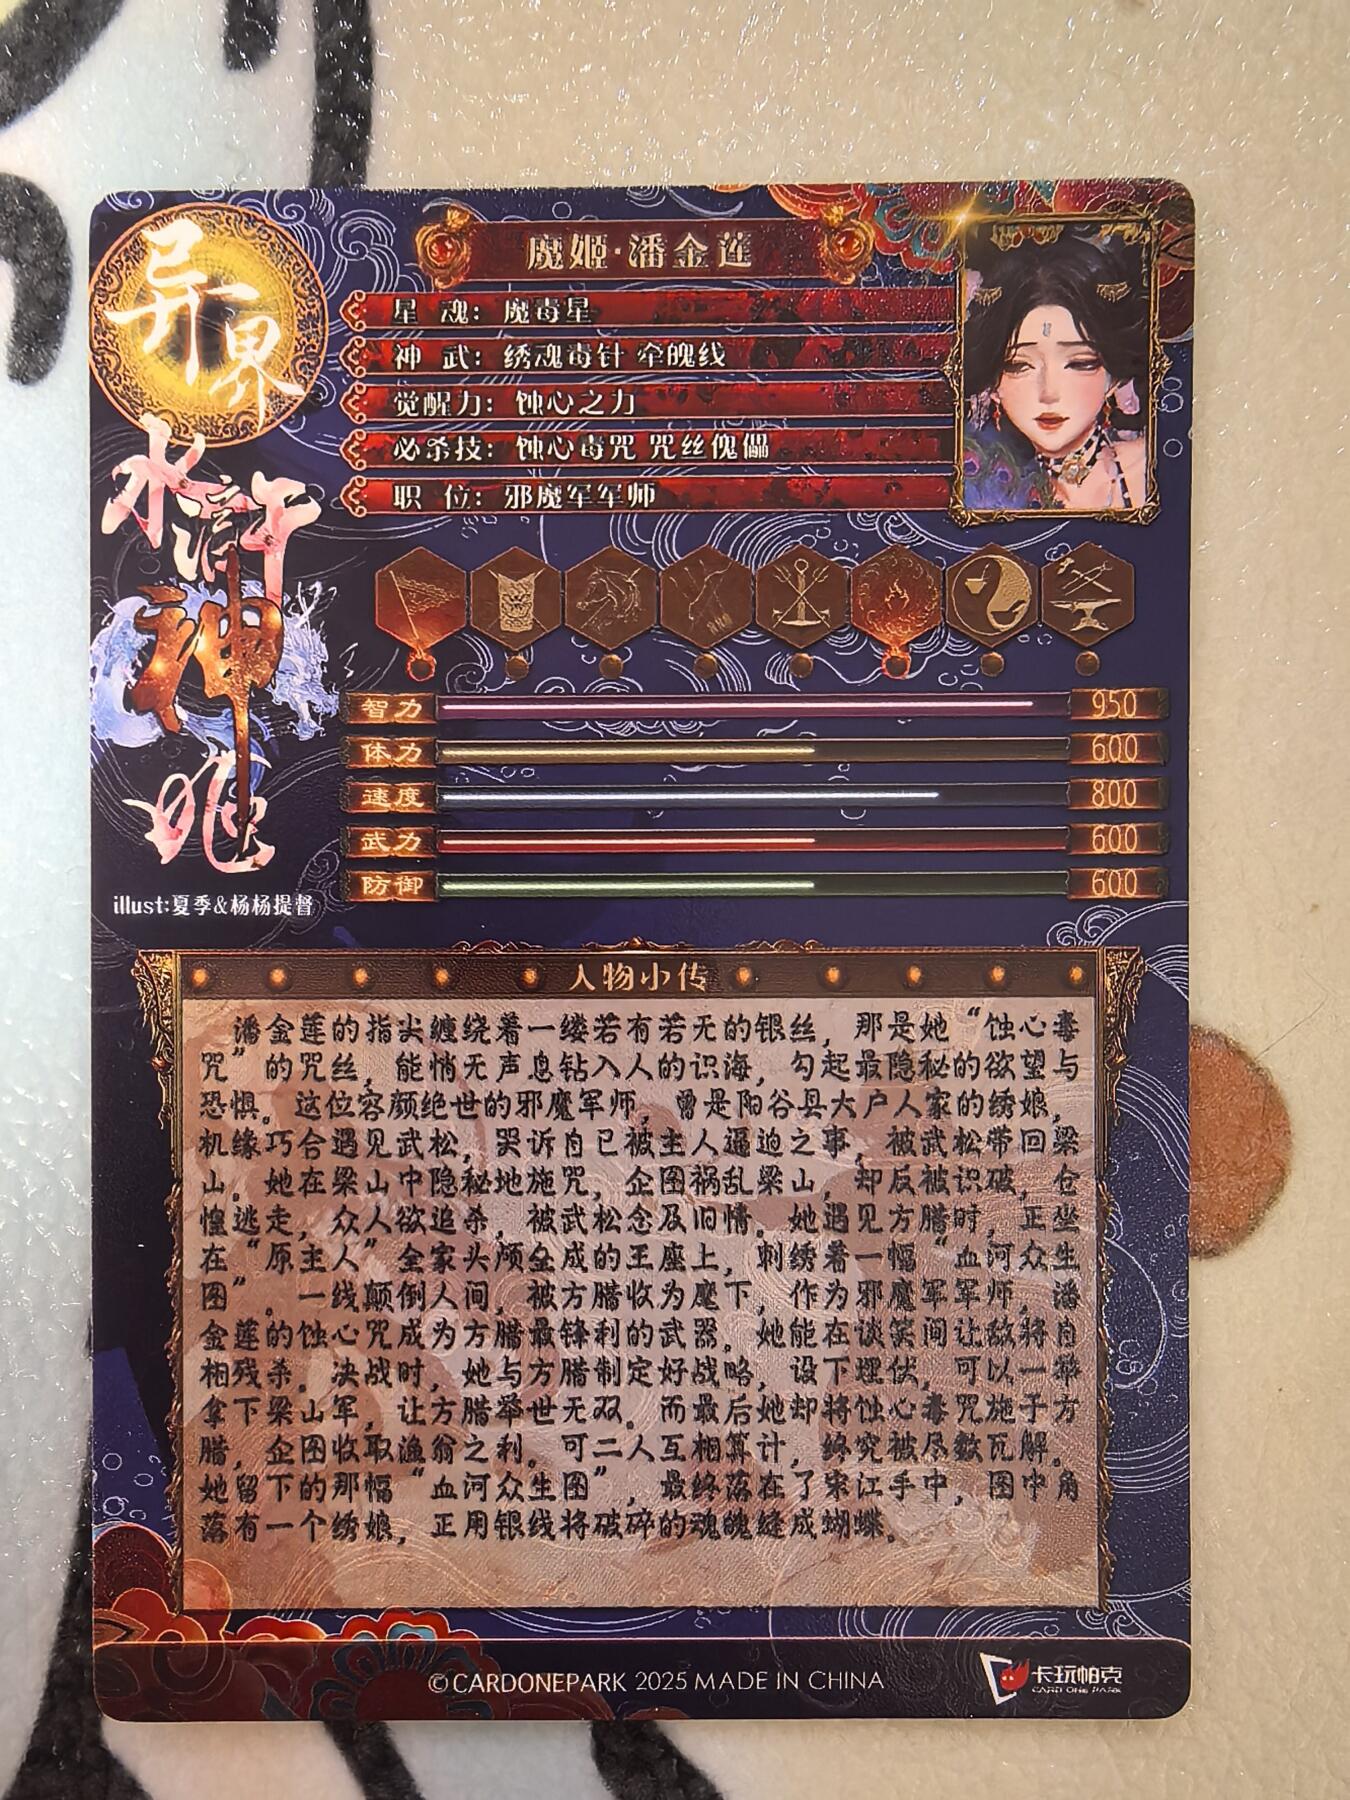 异界
水浒
神
姬
魔姬·潘金莲
星 魂：魔毒星
神 武：绣魂毒针 牵魄线
觉醒力：蚀心之力
必杀技：蚀心毒咒 咒丝傀儡
职 位：邪魔军军师
智力 950
体力 600
速度 800
武力 600
防御 600
illust:夏季&杨杨提督
人物小传
潘金莲的指尖缠绕着一缕若有若无的银丝，那是她“蚀心毒
咒”的咒丝，能悄无声息钻入人的识海，勾起最隐秘的欲望与
恐惧。这位容颜绝世的邪魔军师，曾是阳谷县大户人家的绣娘，
机缘巧合遇见武松，哭诉自己被主人逼迫之事，被武松带回梁
山。她在梁山中隐秘地施咒，企图祸乱梁山，却反被识破，仓
惶逃走，众人欲追杀，被武松念及旧情。她遇见方腊时，正坐
在“原主人”全家头颅垒成的王座上，刺绣着一幅“血河众生
图”。一线颠倒人间，被方腊收为麾下，作为邪魔军军师，潘
金莲的蚀心咒成为方腊最锋利的武器。她能在谈笑间让敌将自
相残杀。决战时，她与方腊制定好战略，设下埋伏，可以一举
拿下梁山军，让方腊举世无双。而最后她却将蚀心毒咒施于方
腊，企图收取渔翁之利。可二人互相算计，终究被尽数瓦解。
她留下的那幅“血河众生图”，最终落在了宋江手中，图中角
落有一个绣娘，正用银线将破碎的魂魄缝成蝴蝶。
©CARDONEPARK 2025 MADE IN CHINA
卡玩帕克
CARD ONE PARK